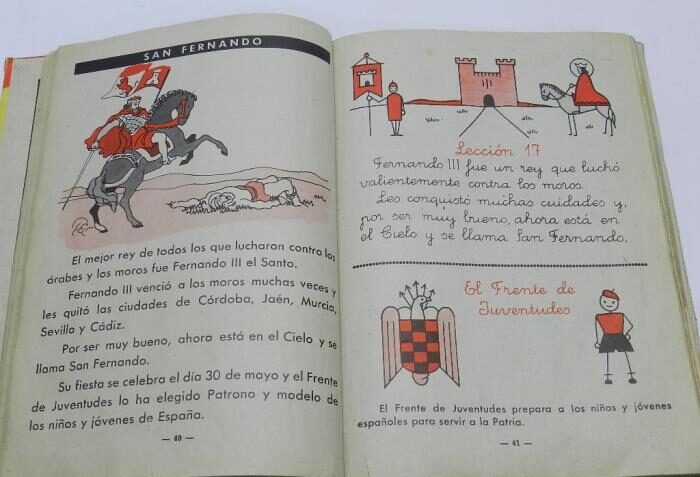 SAN FERNANDO
El mejor rey de todos los que lucharon contra los
árabes y los moros fue Fernando III el Santo.
Fernando III venció a los moros muchas veces y
les quitó las ciudades de Córdoba, Jaén, Murcia,
Sevilla y Cádiz.
Por ser muy bueno, ahora está en el Cielo y se
llama San Fernando.
Su fiesta se celebra el día 30 de mayo y el Frente
de Juventudes lo ha elegido Patrono y modelo de
los niños y jóvenes de España.
— 40 —
Lección 17
Fernando III fue un rey que luchó
valientemente contra los moros.
Les conquistó muchas cuidades y,
por ser muy bueno, ahora está en
el Cielo y se llama San Fernando.
El Frente de
Juventudes
El Frente de Juventudes prepara a los niños y jóvenes
españoles para servir a la Patria.
— 41 —